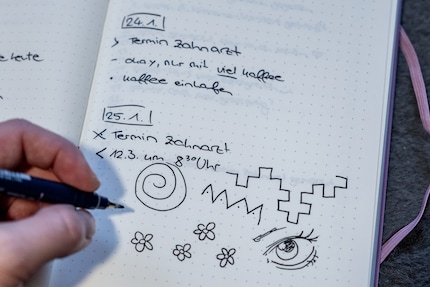 heute
24.1.
> Termin Zahnarzt
- okay, nur mit viel Kaffee
• Kaffee einkaufen
25.1.
× Termin Zahnarzt
< 12.3. um 8³⁰ Uhr